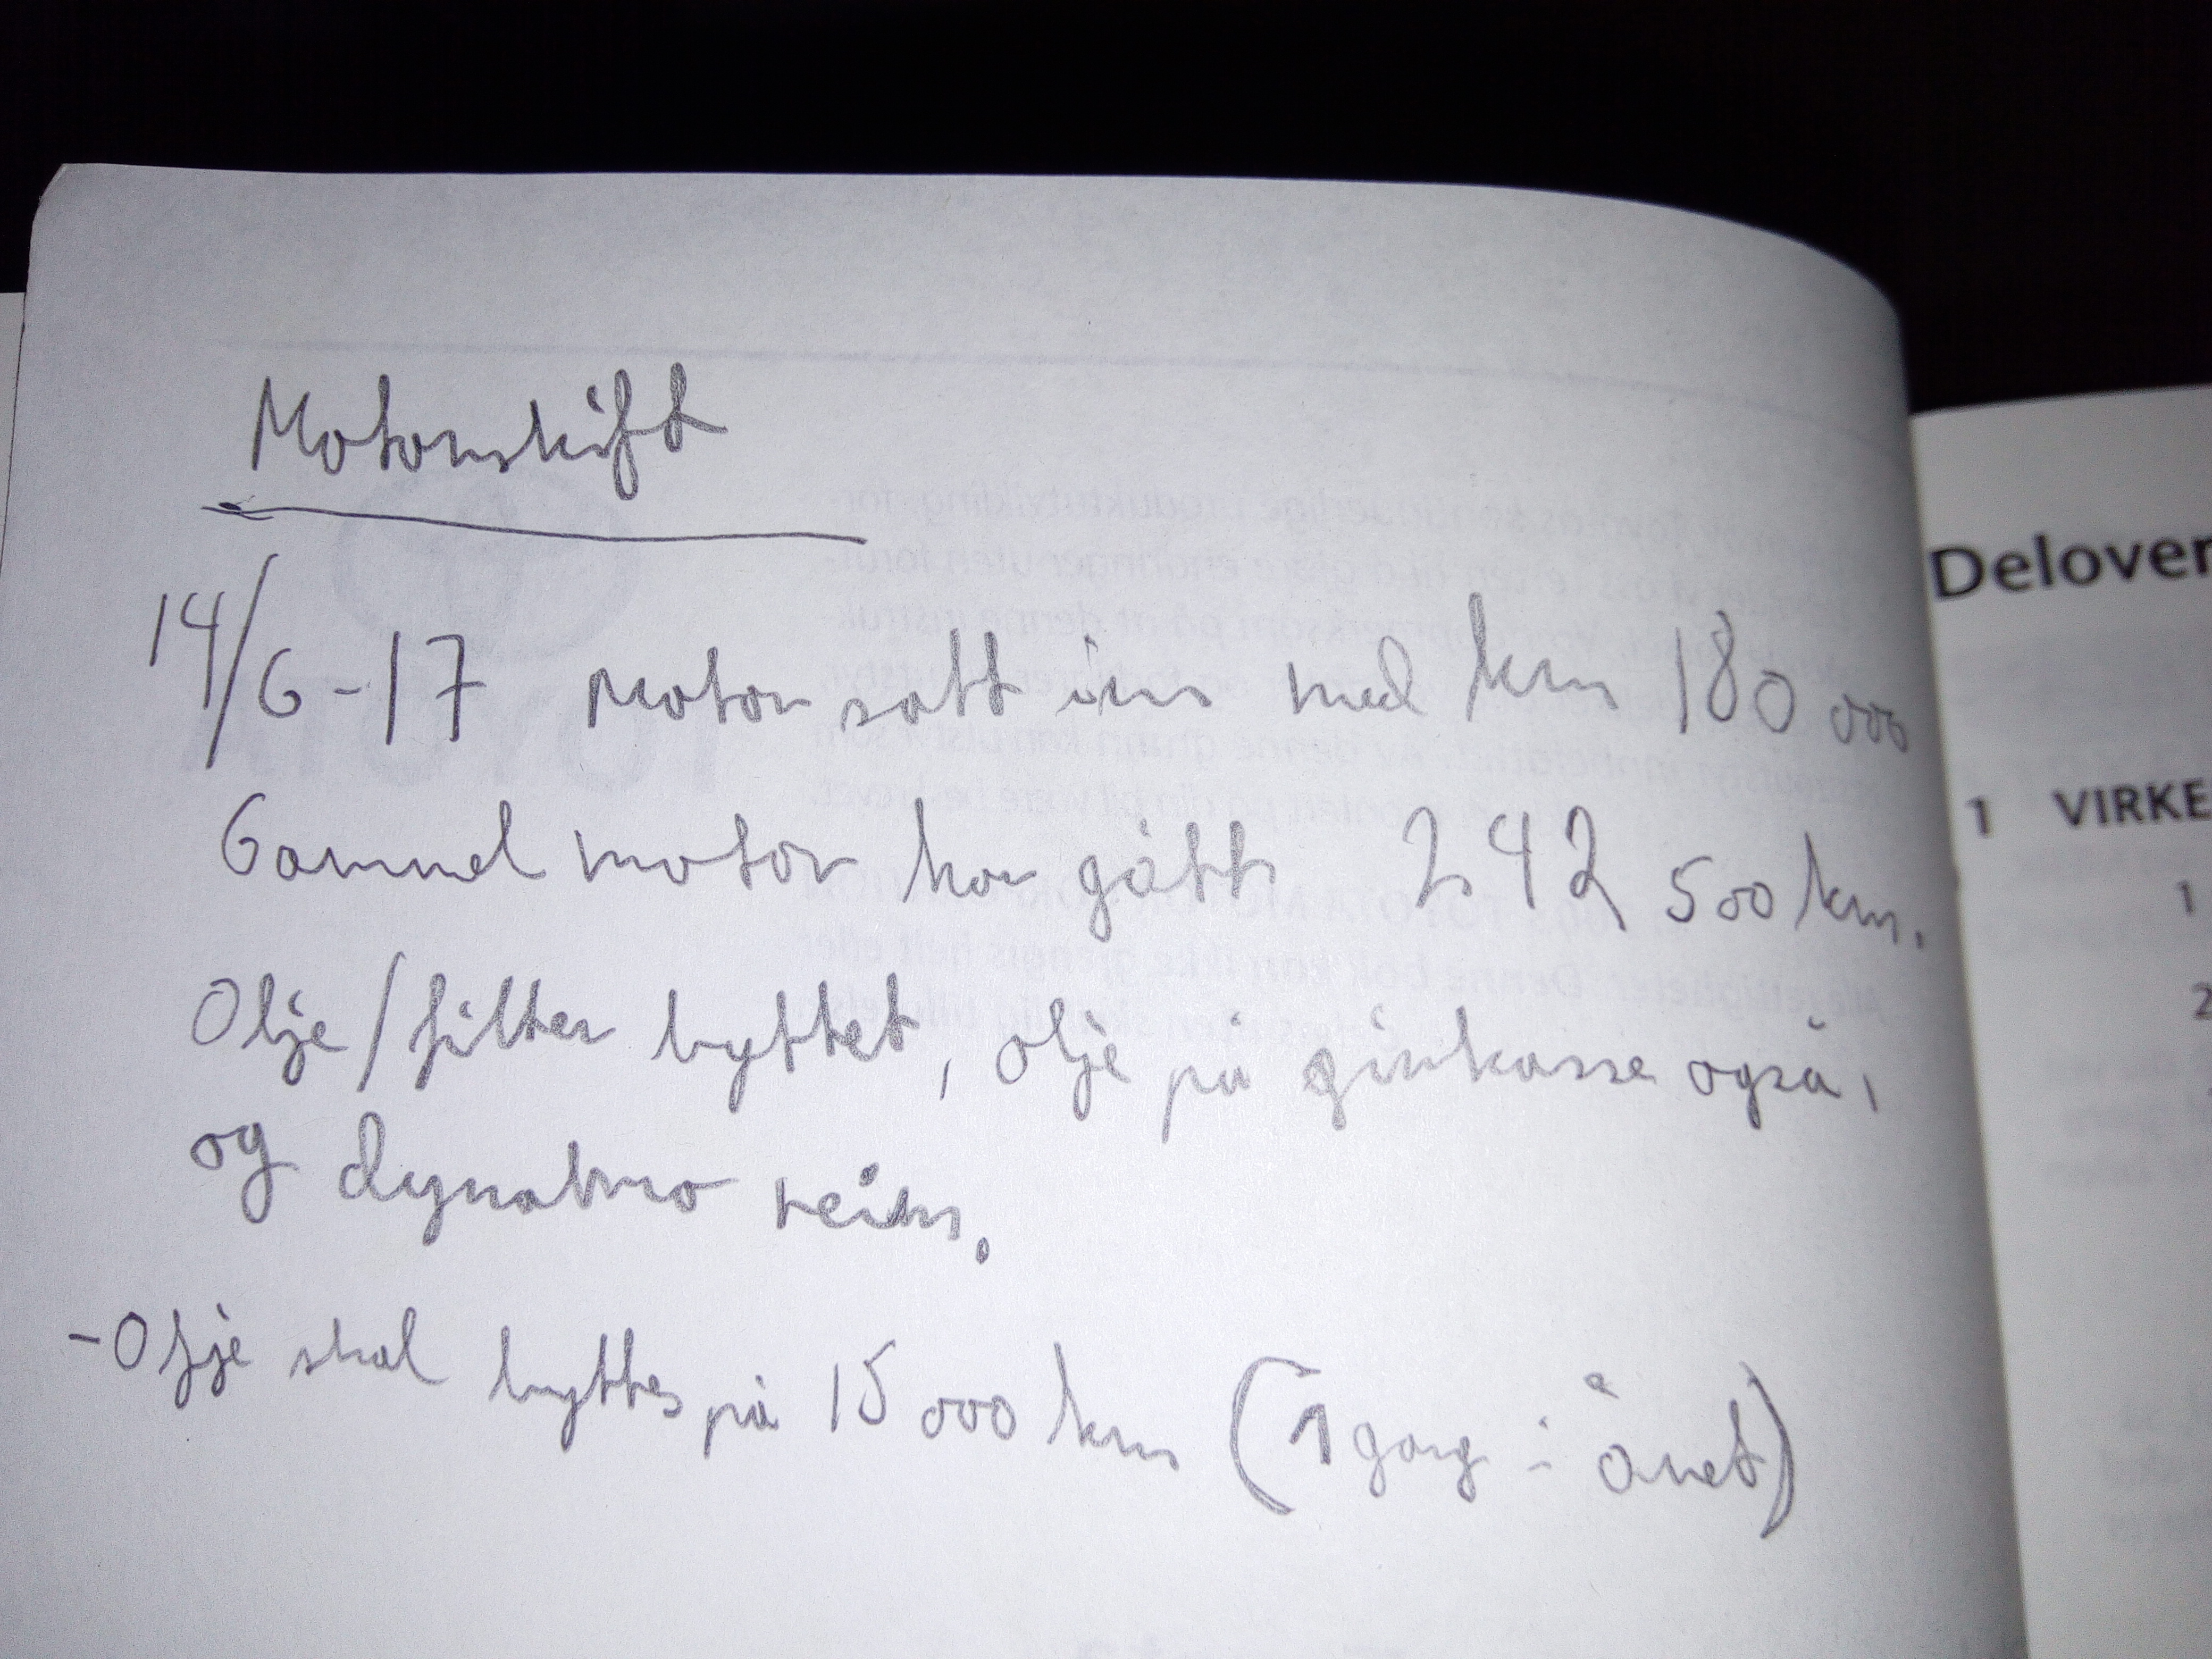 Motorskift
14/6-17 Motor satt inn med km 180 000
Gammel motor har gått 242 500 km.
Olje/filter byttet, olje på girkasse også,
og dynamo reim.
-Olje skal byttes på 15 000 km (1 gang i året)
Delover
1 VIRKE
1
2